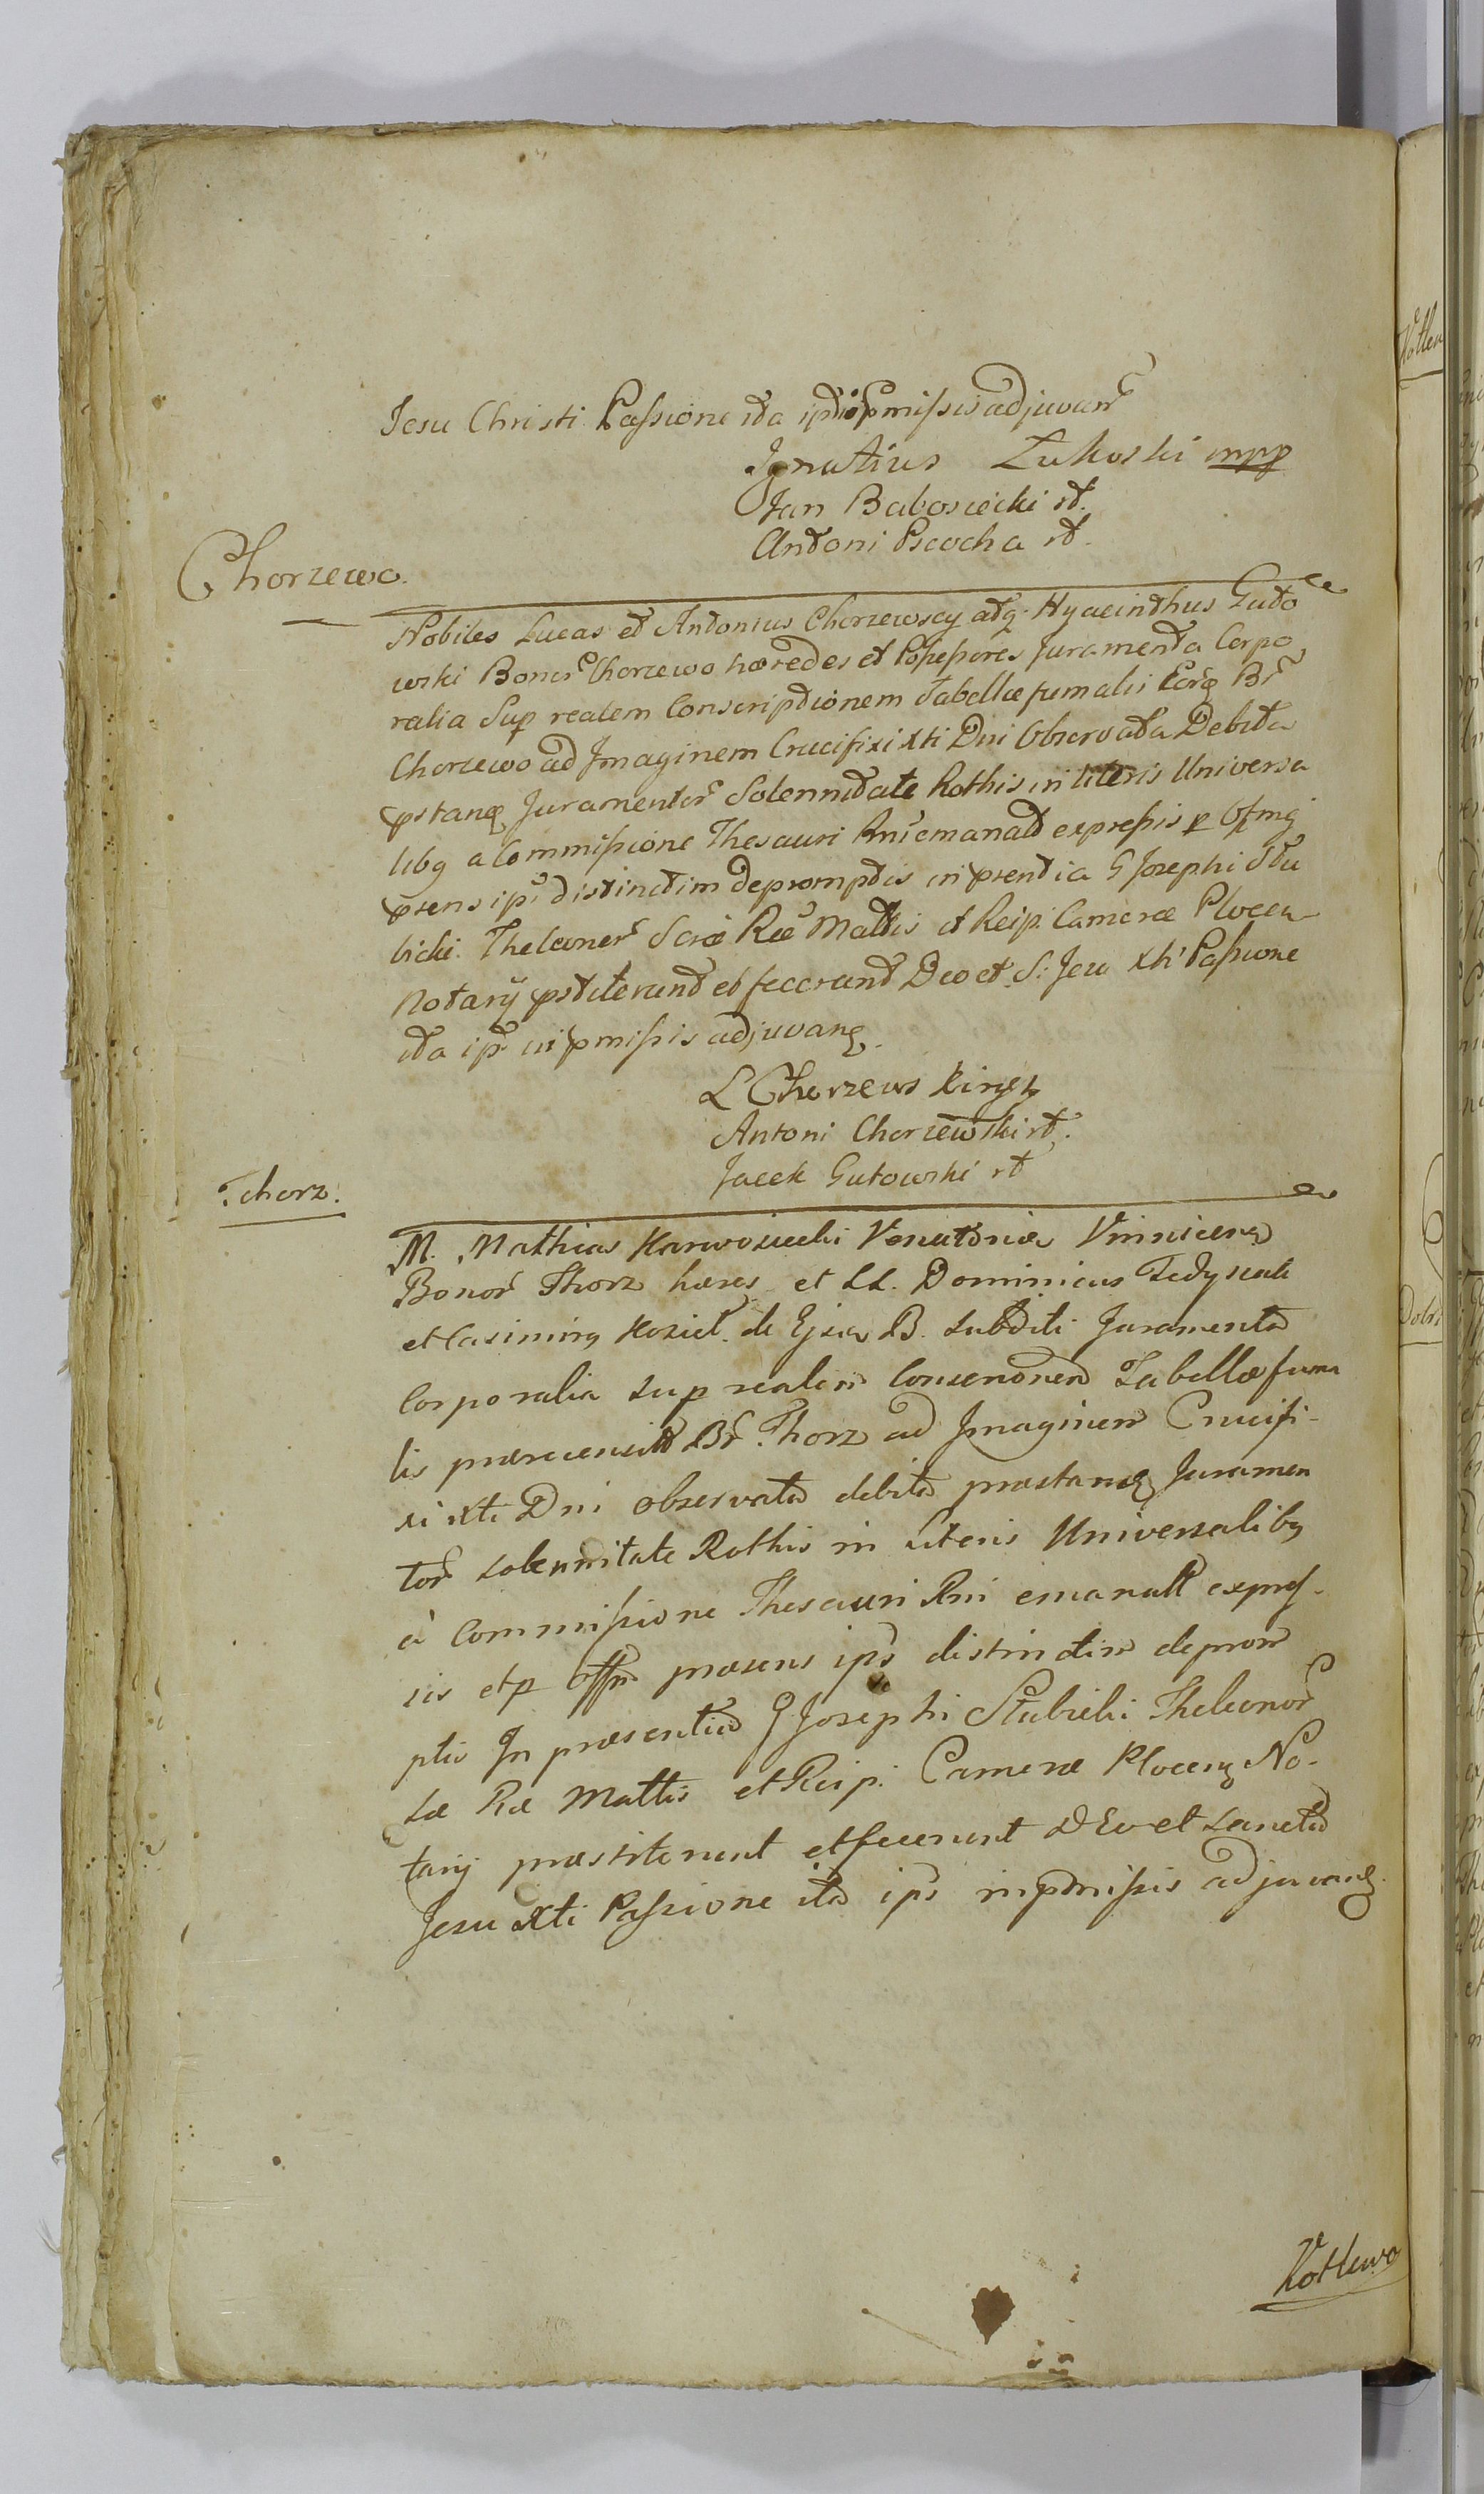 Jesu Christi Passione ita ipsis in pmissis adjuvan
Ignatius Lukoski mpp
Jan Babosiecki rt.
Antoni Pscocha rt.
Chorzewo.
Nobiles Lucas et Antonius Chorzewscy atq Hyacinthus Guto
wski Bonor Chorzewo hæredes et Possessores Juramenta Corpo
ralia Sup realem Conscriptionem Tabellæ fumalis Eorq Br
Chorzewo ad Imaginem Crucifixi Xti Dni Observata Debita
pstanq Juramentor Solennitate Rothis in literis Universa
libq a Commissione Thesauri Rni emanatt expressis p Offmq
psens ips distinctim depromptis in psentia G Josephi Stu
bicki Theloner Scræ Ræ Mattis et Reip. Cameræ Plocen
Notarÿ pstiterunt et fecerunt Deo et S: Jesu Xti Passione
ita ips in pmissis adjuvanq.
L Chorzewski
Antoni Chorzewski rt.
Jacek Gutowski rt
Tchorz.
M. Mathias Karwosiecki Venatoria Vinnicenq
Bonor Thorz hæres et LL. Dominicus
et Casimirq Koziel de Ejsq B. Subditi Juramenta
Corporalia Sup realem Tabellæ fuma
lis præcensitt Br. Thorz ad Imaginem Crucifi-
xi Xti Dni observata debita præstanq Juramen
tor Solennitate Rothis in Literis Universalibq
à Commissione Thesauri Rni emanatt expres-
sis et p Offm præsens ips distinctim deprom
ptis In præsentia G Josephi Stubicki Theloner
Sæ Ræ Mattis et Reip. Cameræ Plocenq No-
tarij præstiterunt et fecerunt DEo et Sancta
Jesu Xti Passione ita ips in pmissis adjuvanq.
Kotlewo